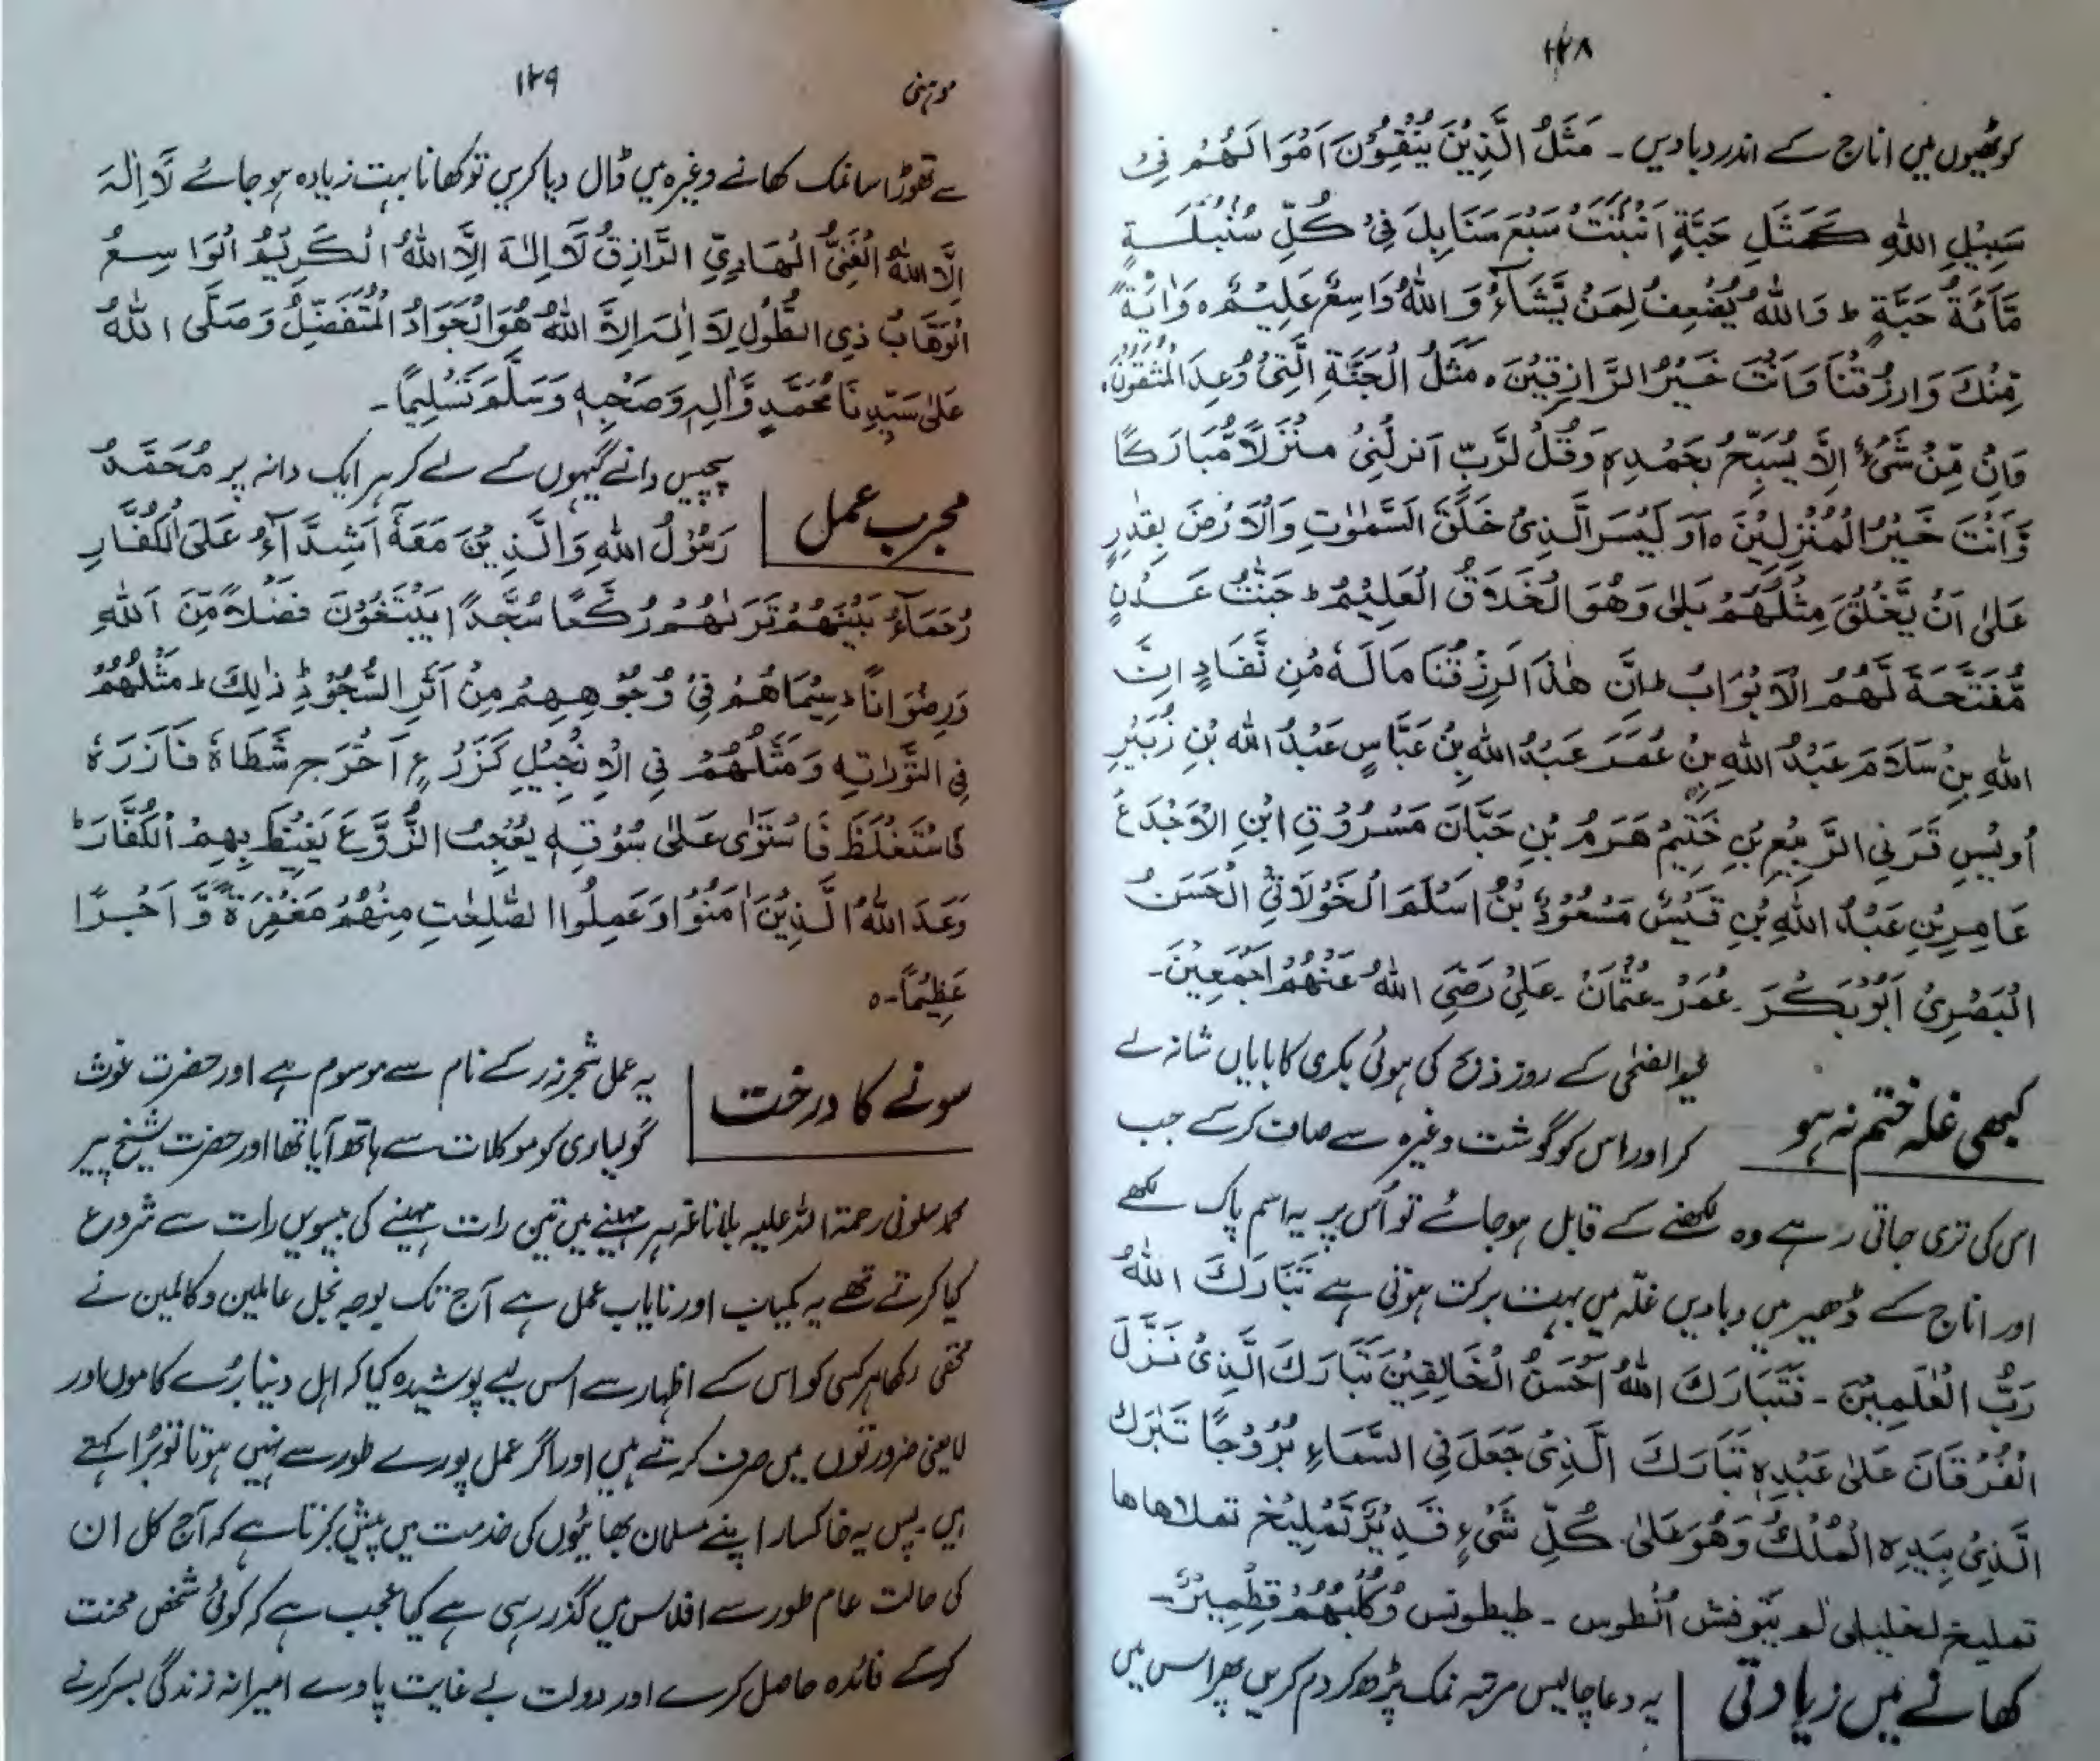 ۱۲۸
کوٹھیوں میں اناج کے اندر دبا دیں ۔ مَثَلُ الَّذِيْنَ يُنْفِقُوْنَ اَمْوَالَهُمْ فِیْ
سَبِيْلِ اللهِ كَمَثَلِ حَبَّةٍ اَنْبَتَتْ سَبْعَ سَنَابِلَ فِیْ كُلِّ سُنْبُلَةٍ
مِّائَةُ حَبَّةٍ ط وَاللهُ يُضٰعِفُ لِمَنْ يَّشَآءُ وَاللهُ وَاسِعٌ عَلِيْمٌ ہ وَاٰيَةً
مِّنْكَ وَارْزُقْنَا وَاَنْتَ خَيْرُ الرَّازِقِيْنَ ہ مَثَلُ الْجَنَّةِ الَّتِیْ وُعِدَ الْمُتَّقُوْنَ ہ
وَاِنْ مِّنْ شَیْءٍ اِلَّا يُسَبِّحُ بِحَمْدِہٖ وَقُلْ لَّرَّبِّ اَنْزِلْنِیْ مُنْزَلًا مُّبَارَكًا
وَّاَنْتَ خَيْرُ الْمُنْزِلِيْنَ ہ اَوَ لَيْسَ الَّذِیْ خَلَقَ السَّمٰوٰتِ وَالْاَرْضَ بِقٰدِرٍ
عَلٰى اَنْ يَّخْلُقَ مِثْلَهُمْ بَلٰى وَهُوَ الْخَلَّاقُ الْعَلِيْمُ ط جَنّٰتُ عَدْنٍ
مُّفَتَّحَةً لَّهُمُ الْاَبْوَابُ ط اِنَّ هٰذَا لَرِزْقُنَا مَالَهٗ مِنْ نَّفَادٍ اِنَّ
اللهِ بِنْ سَلَامَ عَبْدُ اللهِ بِنْ عُمَرَ عَبْدُ اللهِ بِنْ عَبَّاسٍ عَبْدُ اللهِ بْنِ زُبَيْرِ
اُوَيْسِ قَرَنِی الرَّبِيْعِ بْنِ خَثِيْمُ هَرَمُ بْنِ حَبَّانَ مَسْرُوْقِ ابْنِ الْاَجْدَعَ
عَامِرِ بْنِ عَبْدُ اللهِ بْنِ قَيْسٌ مَسْعُوْدٌ بْنُ اَسْلَمَ الْخَوْلَانِیِّ الْحَسَنُ
الْبَصْرِیْ اَبُوْبَكْرَ ۔ عُمَرْ ۔ عُثْمَانَ ۔ عَلِیْ رَضِیَ اللهُ عَنْهُمْ اَجْمَعِيْنَ ۔
کبھی غلہ ختم نہ ہو
عید الضحٰی کے روز ذبح کی ہوئی بکری کا بایاں شانہ لے
کر اور اس کو گوشت وغیرہ سے صاف کر کے جب
اس کی تری جاتی رہے وہ لکھنے کے قابل ہو جائے تو اُس پر یہ اسم پاک لکھے
اور اناج کے ڈھیر میں دبا دیں غلّہ میں بہت برکت ہوتی ہے تَبَارَكَ اللهُ
رَبُّ الْعٰلَمِيْنَ ۔ فَتَبَارَكَ اللهُ اَحْسَنُ الْخَالِقِيْنَ تَبَارَكَ الَّذِیْ نَزَّلَ
الْفُرْقَانَ عَلٰى عَبْدِہٖ تَبَارَكَ الَّذِیْ جَعَلَ فِی السَّمَاءِ بُرُوْجًا تَبٰرَكَ
الَّذِیْ بِيَدِہِ الْمُلْكُ وَهُوَ عَلٰى كُلِّ شَیْءٍ قَدِيْرٌ تَمْلِيْخَ تملاهاها
تمليخ لخليلی لم يتوفش اُنطوس ۔ طيطونس وَكَلْبُهُمْ قِطْمِيْرٌ ۔
کھانے میں زیادتی
یہ دعا چالیس مرتبہ نمک پڑھ کر دم کریں پھر اس میں
موہنی
۱۲۹
سے تھوڑا سا نمک کھانے وغیرہ میں ڈال دیا کریں تو کھانا بہت زیادہ ہو جائے لَا اِلٰهَ
اِلَّا اللهُ الْغَنِیُّ الْهَادِیِّ الرَّازِقُ لَا اِلٰهَ اِلَّا اللهُ الْكَرِيْمُ الْوَاسِعُ
الْوَهَّابُ ذِی الطُّوْلِ لَا اِلٰهَ اِلَّا اللهُ هُوَ الْجَوَادُ الْمُتَفَضِّلُ وَصَلَّى اللهُ
عَلٰى سَيِّدِنَا مُحَمَّدٍ وَّاٰلِهٖ وَصَحْبِهٖ وَسَلَّمَ تَسْلِيْمًا ۔
مجرب عمل
پچیس دانے گیہوں کے لے کر ہر ایک دانہ پر مُحَمَّدٌ
رَسُوْلُ اللهِ وَالَّذِيْنَ مَعَهٗٓ اَشِدَّآءُ عَلَى الْكُفَّارِ
رُحَمَآءُ بَيْنَهُمْ تَرَىٰهُمْ رُكَّعًا سُجَّدًا يَبْتَغُوْنَ فَضْلًا مِّنَ اللهِ
وَرِضْوَانًا ۔ سِيْمَاهُمْ فِیْ وُجُوْهِهِمْ مِنْ اَثَرِ السُّجُوْدِ ذٰلِكَ ط مَثَلُهُمْ
فِی التَّوْرٰتِهٖ وَمَثَلُهُمْ فِی الْاِنْجِيْلِ كَزَرْعٍ اَخْرَجَ شَطَاهٗ فَاٰزَرَهٗ
فَاسْتَغْلَظَ فَاسْتَوٰى عَلٰى سُوْقِهٖ يُعْجِبُ الزُّرَّعَ يَغِيْظَ بِهِمُ الْكُفَّارَ ط
وَعَدَ اللهُ الَّذِيْنَ اٰمَنُوْا وَعَمِلُوا الصّٰلِحٰتِ مِنْهُمْ مَغْفِرَةً وَّاَجْرًا
عَظِيْمًا ۔ ہ
سونے کا درخت
یہ عمل شجر زر کے نام سے موسوم ہے اور حضرت غوث
گولیاری کو موکلات سے ہاتھ آیا تھا اور حضرت شیخ پیر
محمد سلونی رحمۃ اللہ علیہ بلا ناغہ ہر مہینے میں تین رات مہینے کی بیسویں رات سے شروع
کیا کرتے تھے یہ کمیاب اور نایاب عمل ہے آج تک بوجہ بخل عاملین و کاملین نے
مخفی رکھا ہر کسی کو اس کے اظہار سے اس لیے پوشیدہ کیا کہ اہل دنیا بُرے کاموں اور
لایعنی ضرورتوں میں صرف کرتے ہیں اور اگر عمل پورے طور سے نہیں ہوتا تو بُرا کہتے
ہیں ۔ پس یہ خاکسار اپنے مسلمان بھائیوں کی خدمت میں پیش کرتا ہے کہ آج کل ان
کی حالت عام طور سے افلاس میں گذر رہی ہے کیا عجب ہے کہ کوئی شخص محنت
کر کے فائدہ حاصل کرے اور دولت بے غایت پاوے امیرانہ زندگی بسر کرنے